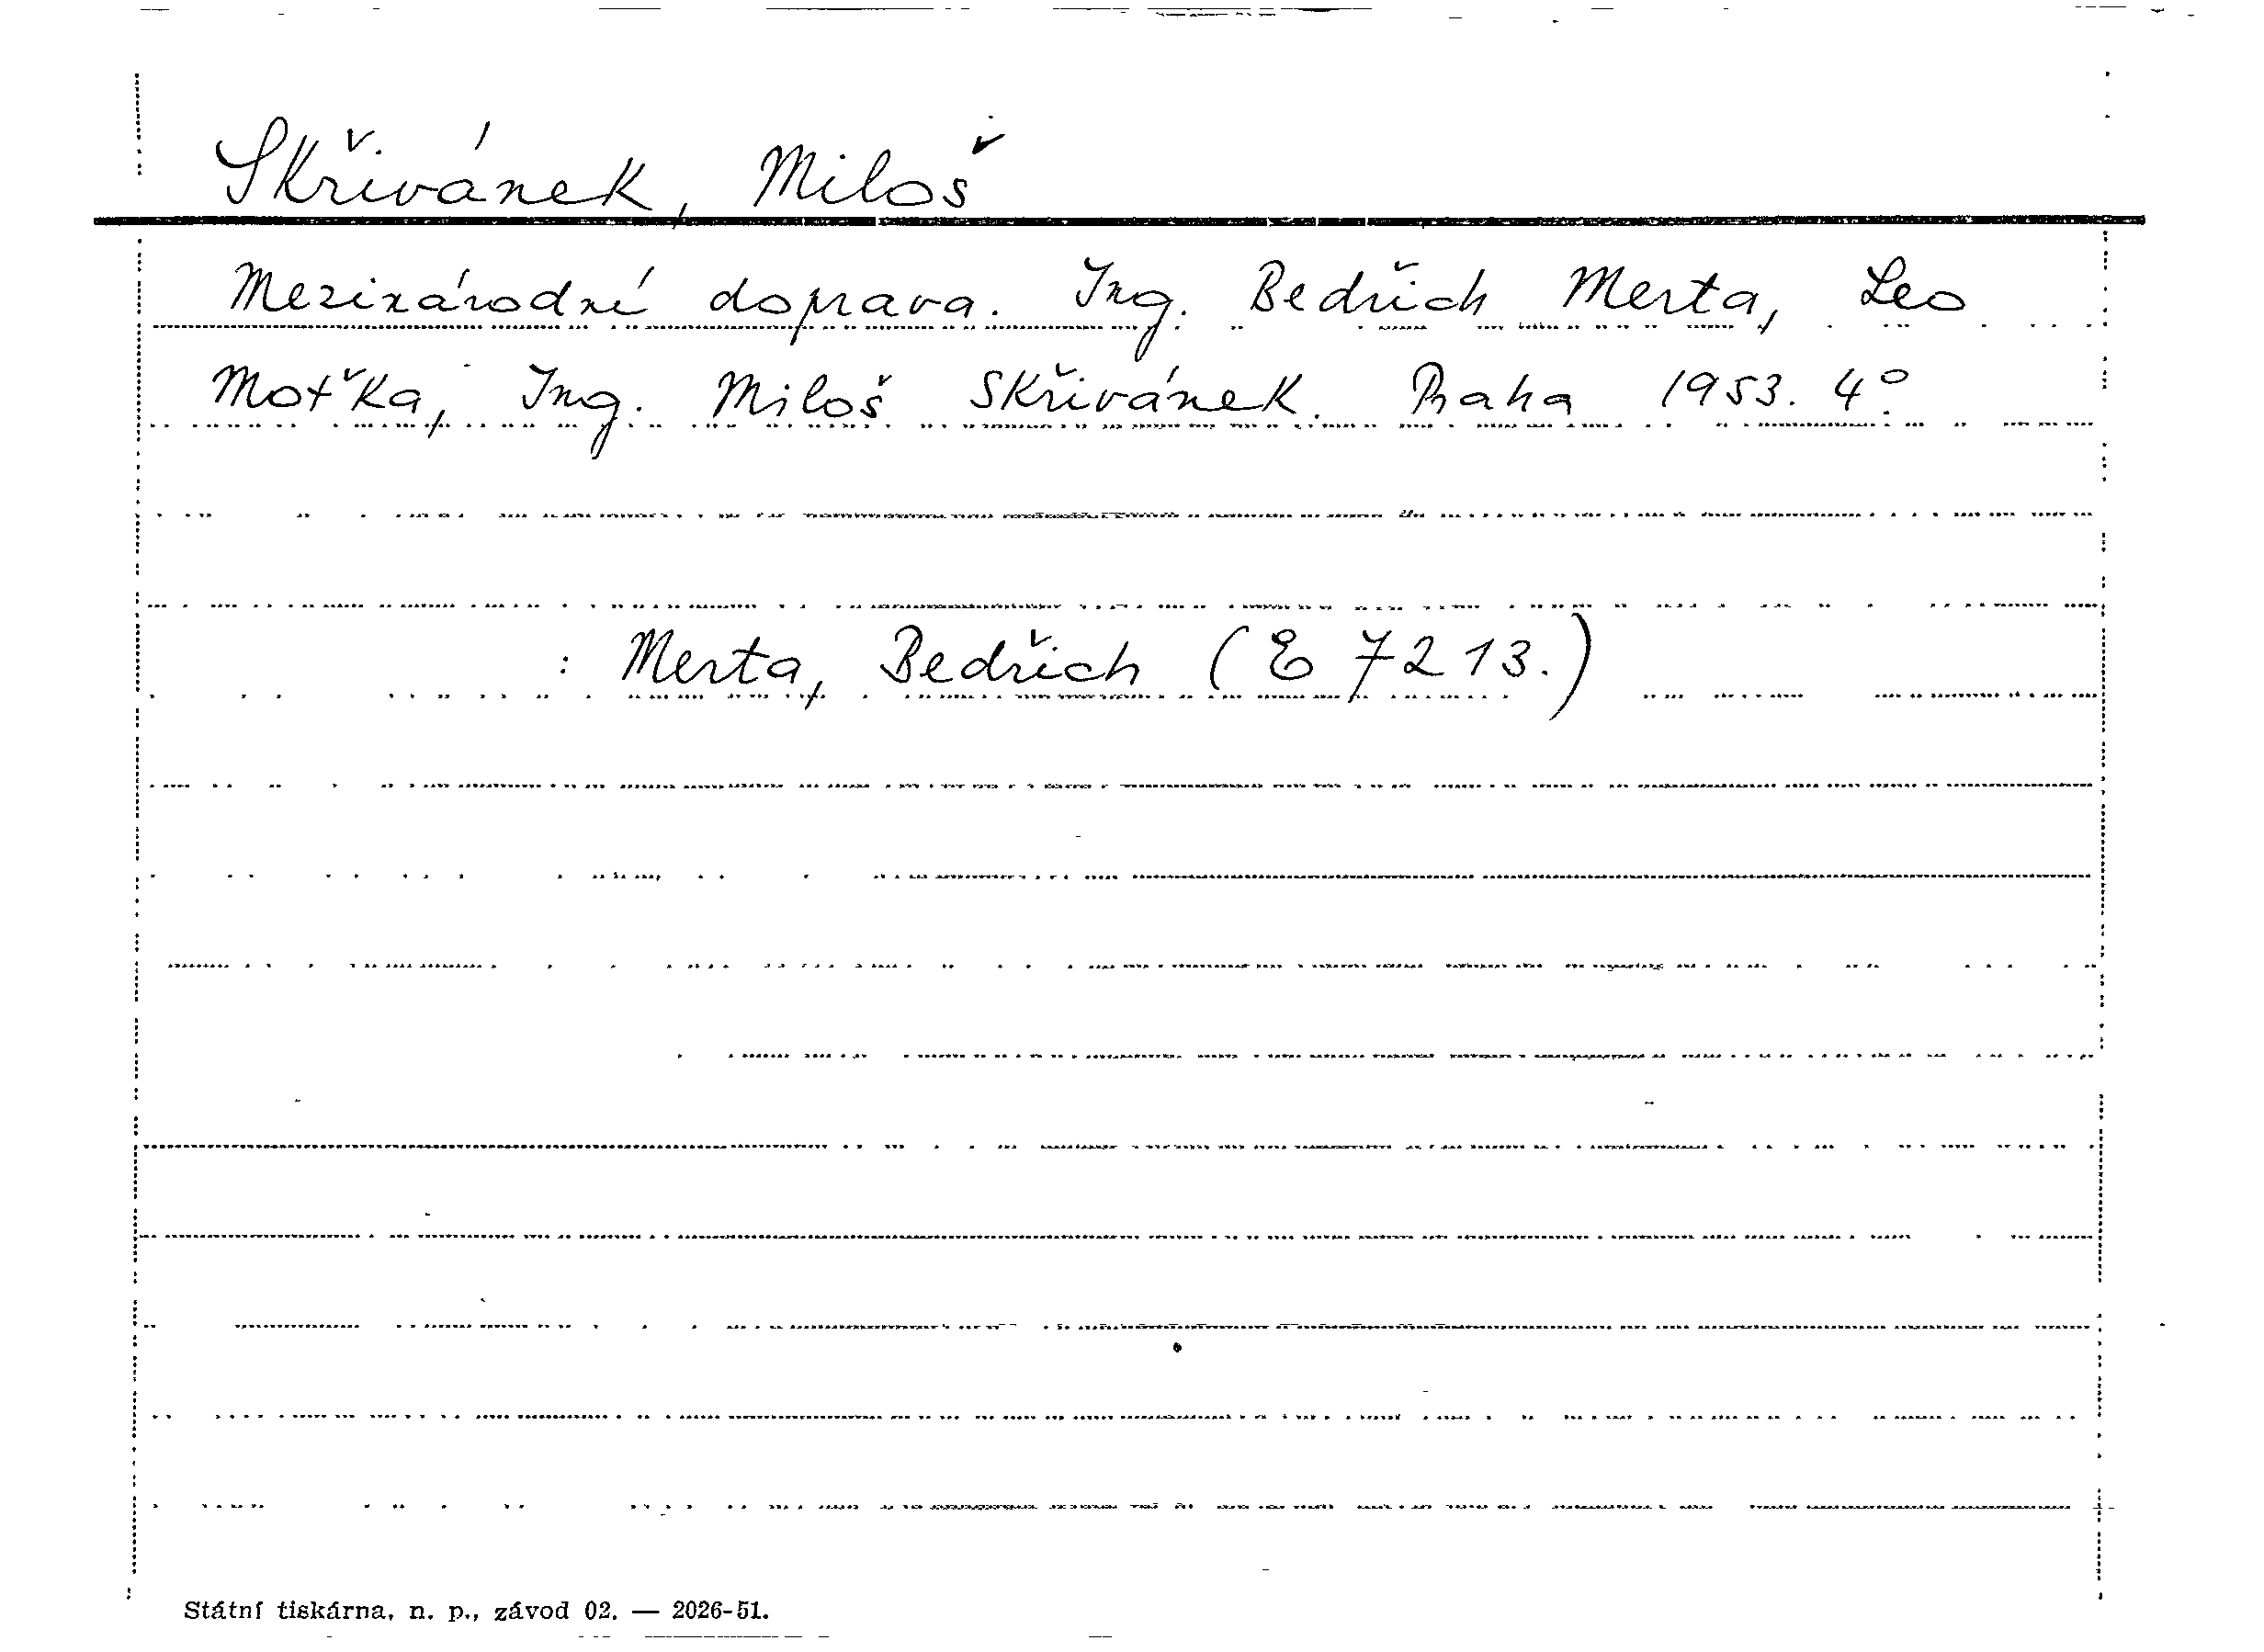 Skřivánek, Miloš
Mezinárodní doprava. Ing. Bedřich Merta, Leo
Moťka, Ing. Miloš Skřivánek. Praha 1953. 4°.
: Merta, Bedřich (E 7213.)
Státní tiskárna, n. p., závod 02. — 2026-51.